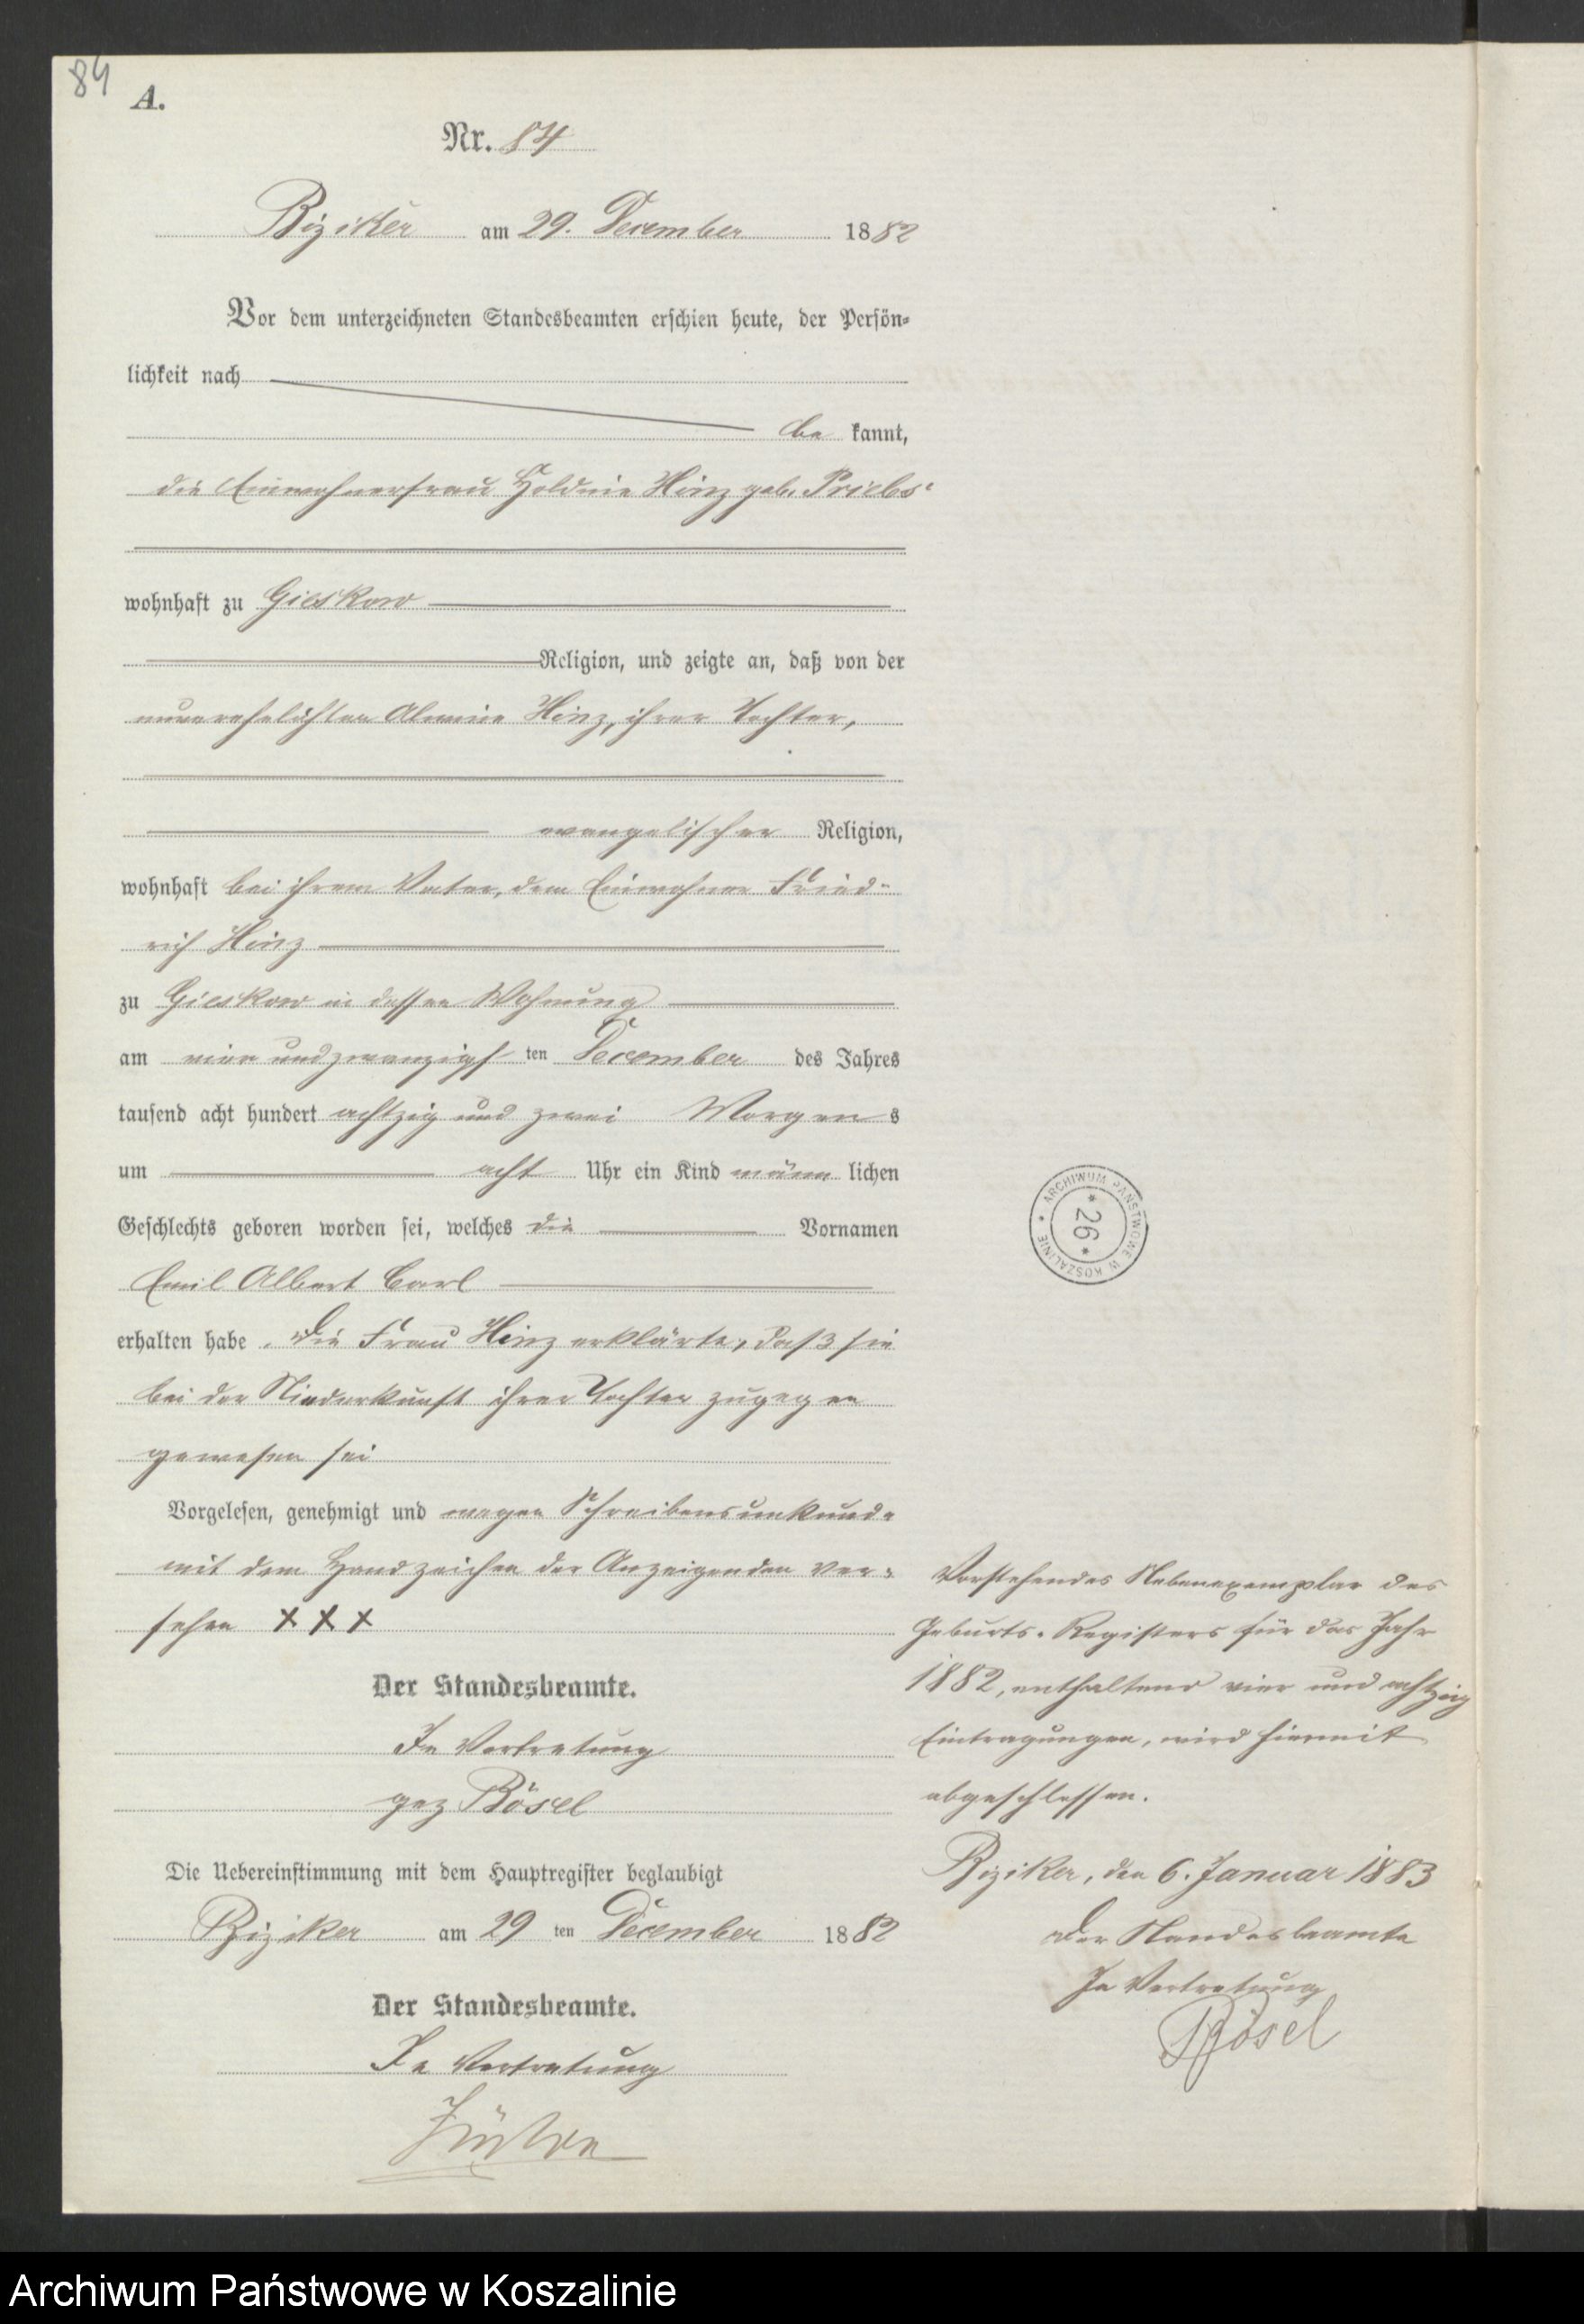 84
A.
Nr. 84
Biziker am 29. December 1882
Vor dem unterzeichneten Standesbeamten erschien heute, der Persön-
lichkeit nach
be kannt,
die Einwohnerfrau Hinz geb. Priebs
wohnhaft zu Gieskow
Religion, und zeigte an, daß von der
unverehelichten Alwine Hinz, ihrer Tochter,
evangelischer Religion,
wohnhaft bei ihrem Vater, dem Einwohner Fried-
rich Hinz
zu Gieskow in dessen Wohnung
am vier und zwanzigs ten December des Jahres
tausend acht hundert achtzig und zwei Morgen s
um acht Uhr ein Kind männ lichen
Geschlechts geboren worden sei, welches die Vornamen
Emil Albert Carl
erhalten habe. Die Frau Hinz erklärte, daß sie
bei der Niederkunft ihrer Tochter zugegen
gewesen sei
Vorgelesen, genehmigt und wegen Schreibensunkunde
mit dem Handzeichen der Anzeigenden ver-
sehen XXX
Der Standesbeamte.
In Vertretung
gez Bösel
Die Uebereinstimmung mit dem Hauptregister beglaubigt
Biziker am 29 ten December 1882
Der Standesbeamte.
In Vertretung
ARCHIWUM PAŃSTWOWE W KOSZALINIE
* 26 *
Vorstehendes Nebenexemplar des
Geburts-Registers für das Jahr
1882, enthaltend vier und achtzig
Eintragungen, wird hiermit
abgeschlossen.
Biziker, den 6. Januar 1883
Der Standesbeamte
In Vertretung
Bösel
Archiwum Państwowe w Koszalinie